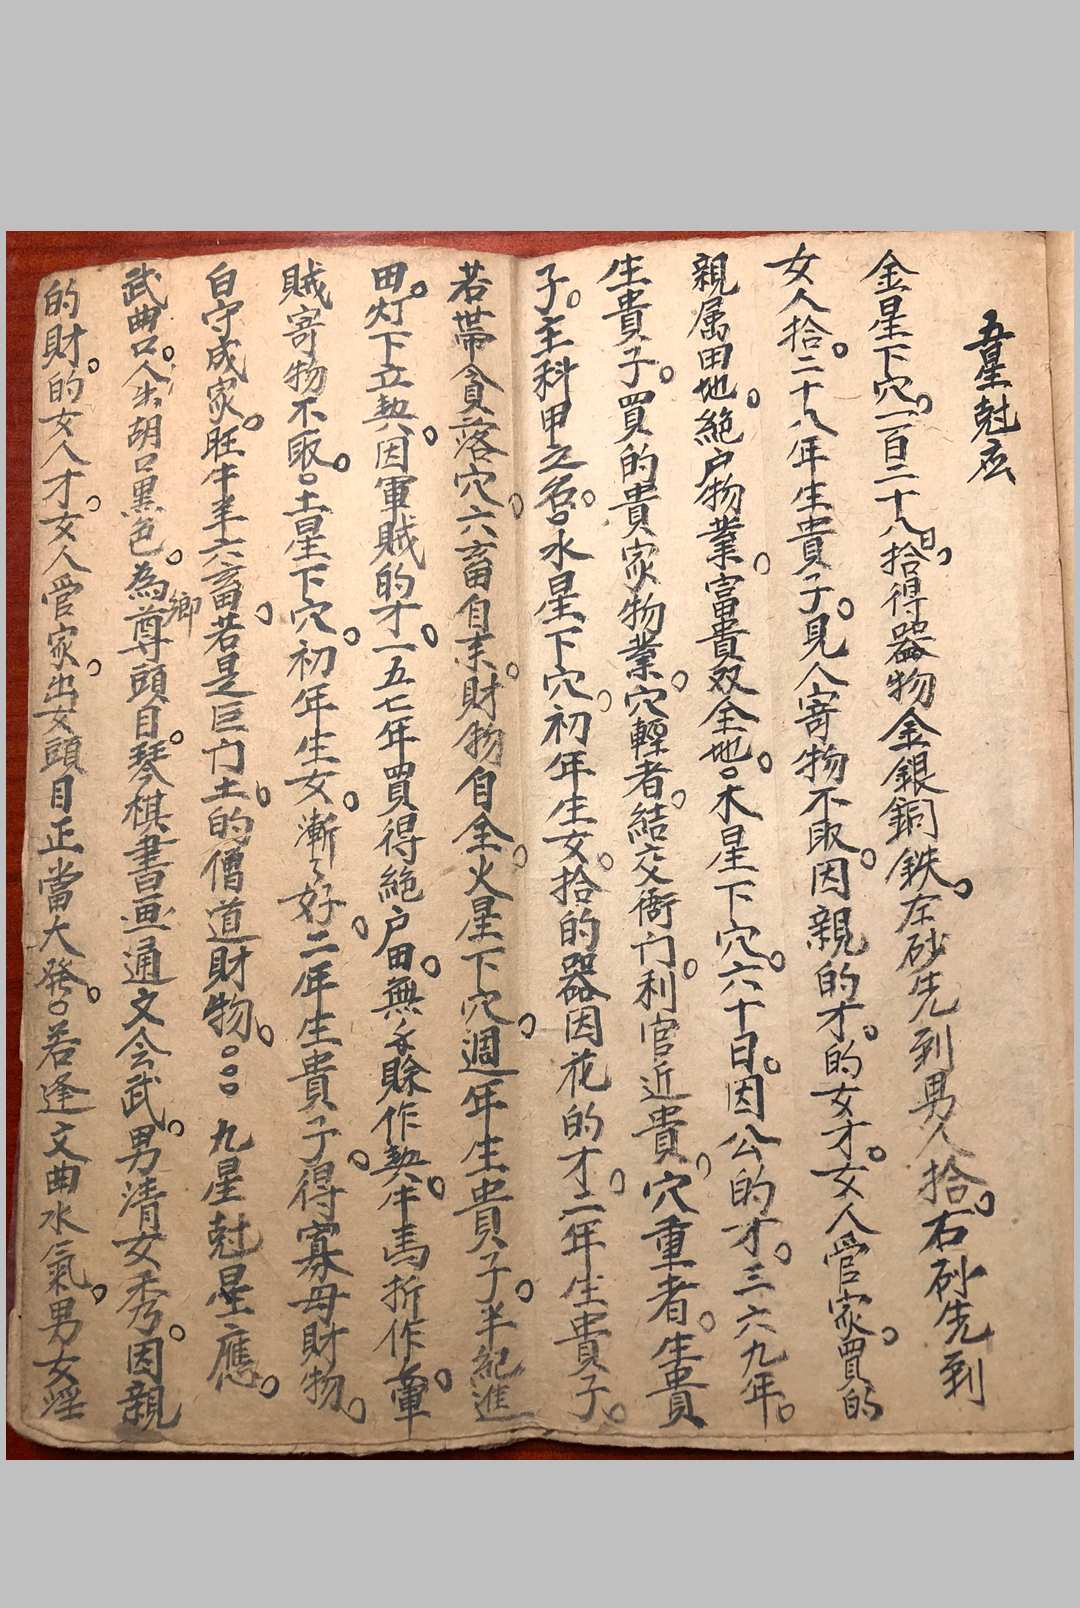 五星尅应
金星下穴。一百二十八日。拾得器物金銀銅鉄。左砂先到男人拾。右砂先到
女人拾。二十八年生貴子。見人寄物不取。因親的才。的女才。女人管家。買的
親属田地。絶户物業。富貴双全地。木星下穴。六十日。因公的才。三六九年。
生貴子。買的貴家物業。穴輕者。結交衙门。利官近貴。穴重者。生貴
子。主科甲之名。水星下穴。初年生女。拾的器因花的才。二年生貴子。
若帶貪落穴。六畜自来。財物自全。火星下穴。週年生貴子。半紀進
田。灯下立契。因軍賊的才。一五七年買得絶户田。無錢賒作契。牛馬折作。軍
賊寄物不取。土星下穴。初年生女。漸々好。二年生貴子。得寡母財物。
白守成家。旺牛羊六畜。若是巨门土。的僧道財物。 九星尅星應。
武曲口。人出胡口黑色。為鄉尊頭目。琴棋書畫通文会武。男清女秀。因親
的財。的女人才。女人管家。出女頭目正當大發。若逢文曲水氣。男女淫